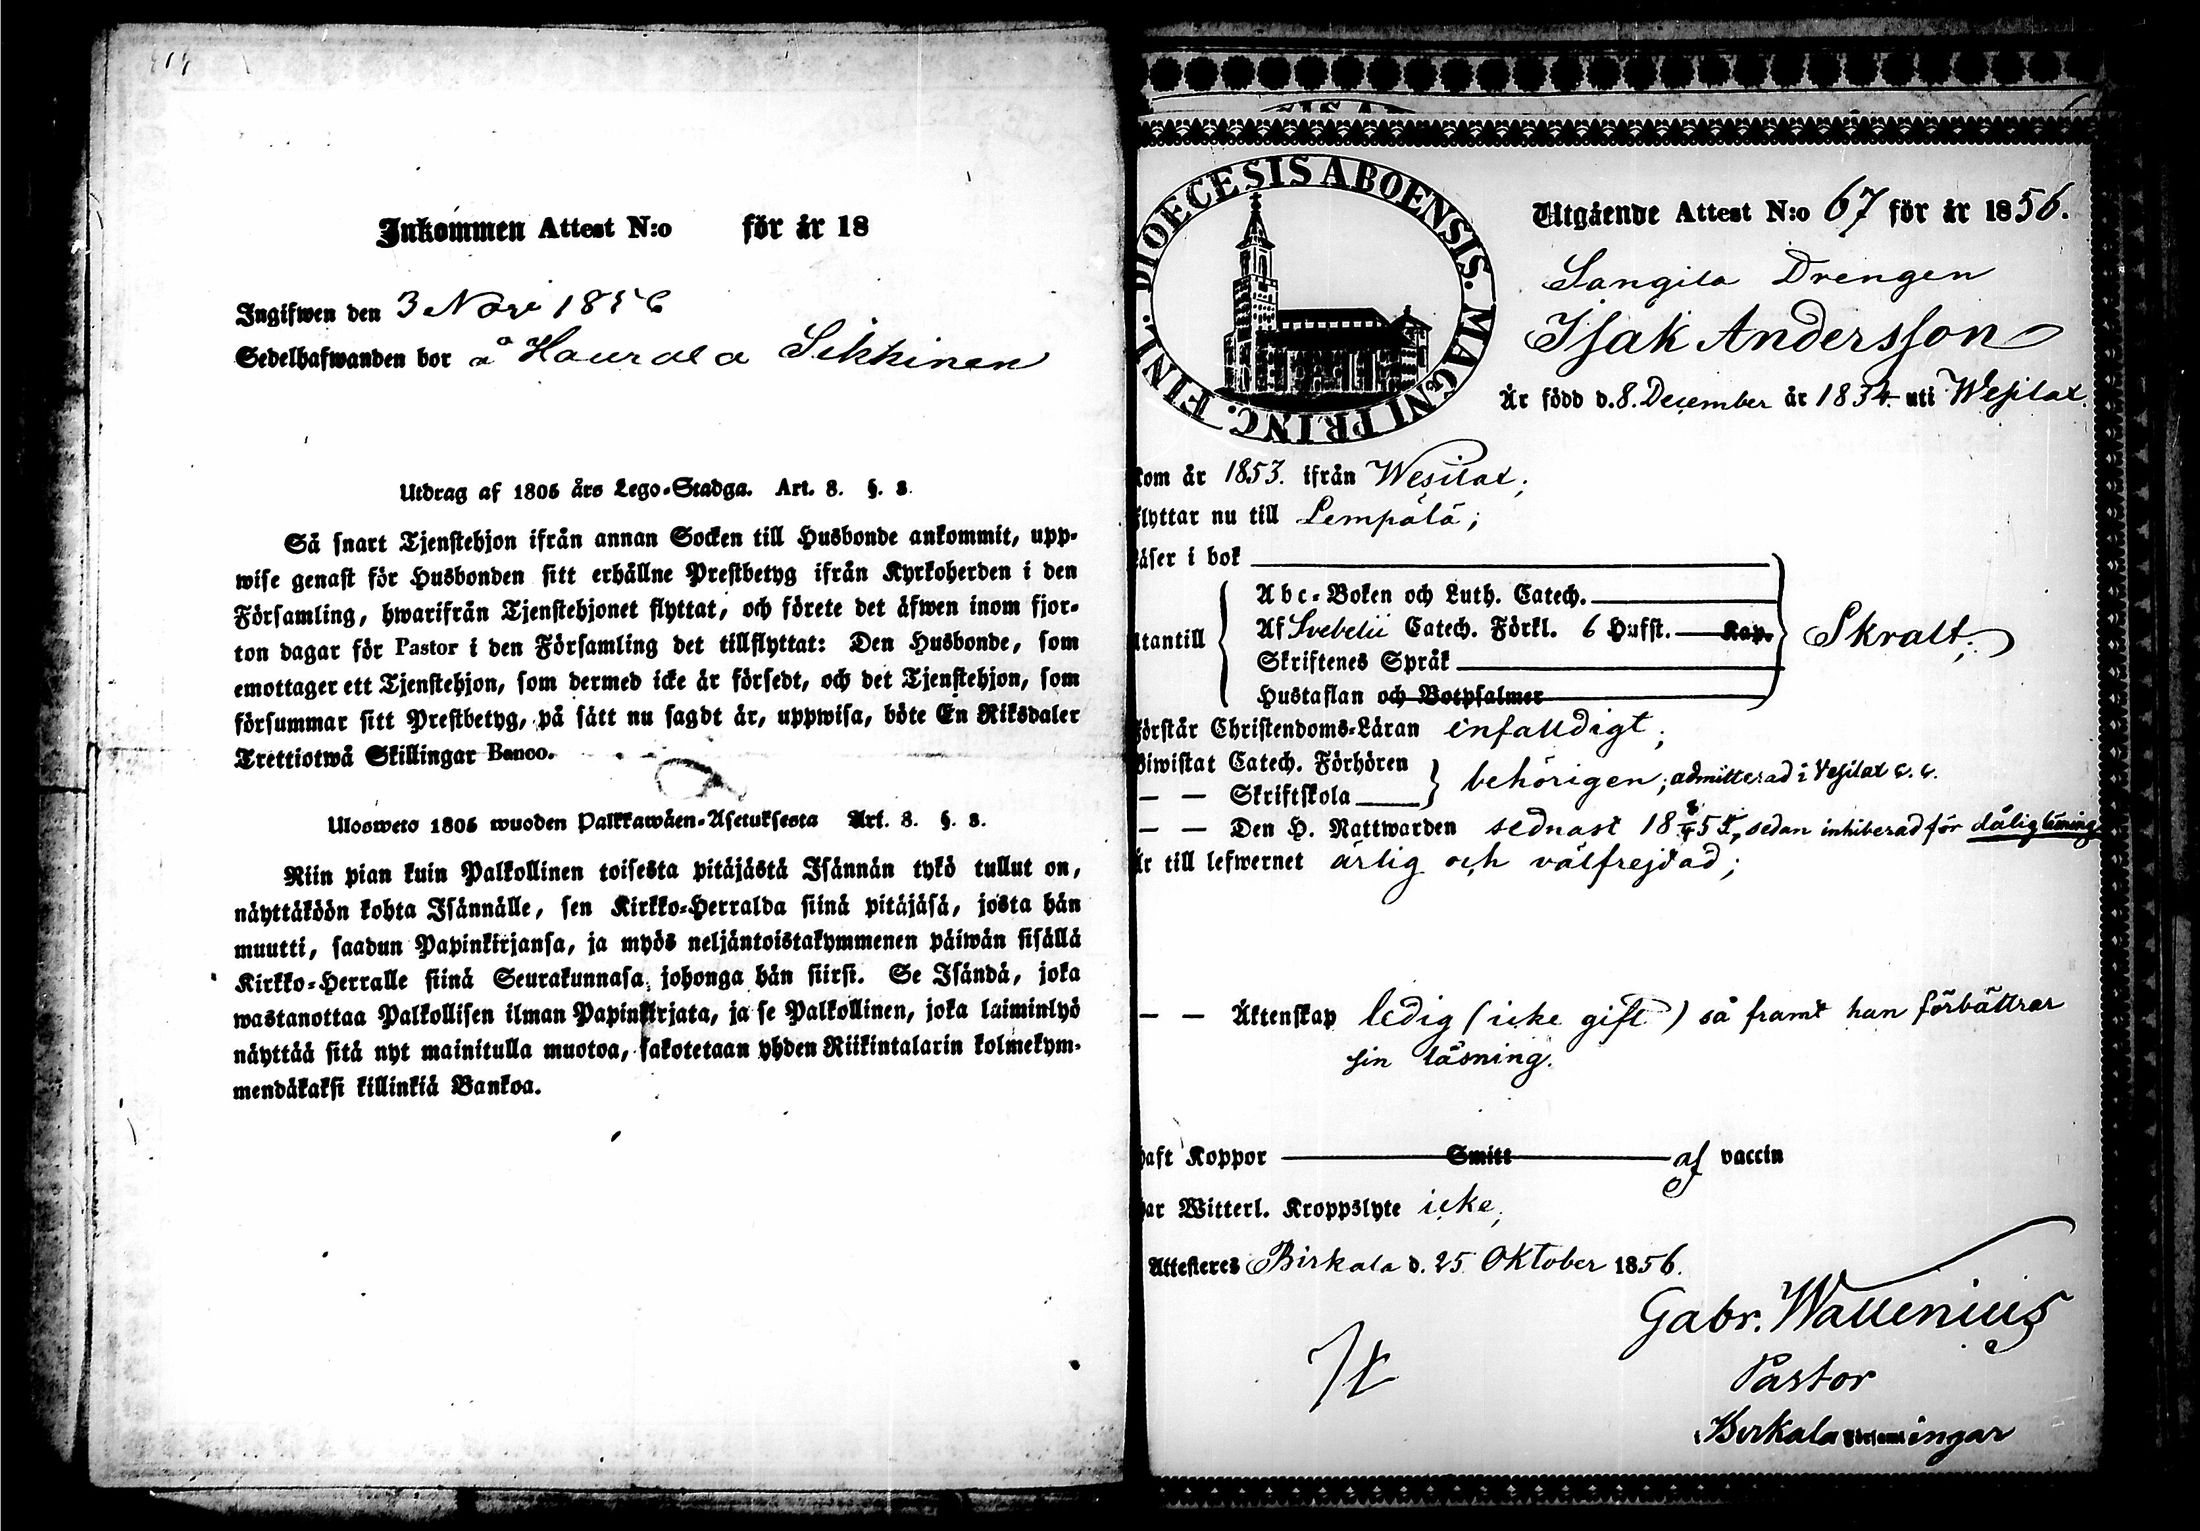 Inkommen Attest N:o för år 18
Ingifwen den 3 Novr 1856
Sedelhafwanden bor å Haurala Sikkinen
Utdrag af 1805 års Lego-Stadga. Art. 8. §. 8.
Så snart Tjenstehjon ifrån annan Socken till Husbonde ankommit, upp-
wise genast för Husbonden sitt erhållne Prestbetyg ifrån Kyrkoherden i den
Församling, hwarifrån Tjenstehjonet flyttat, och förete det äfwen inom fjor-
ton dagar för Pastor i den Församling det tillflyttat: Den Husbonde, som
emottager ett Tjenstehjon, som dermed icke är försedt, och det Tjenstehjon, som
försummar sitt Prestbetyg, på sätt nu sagdt är, uppwisa, böte En Riksdaler
Trettiotwå Skillingar Banco.
Ulosweto 1805 wuoden Palkkawäen-Asetuksesta Art. 8. §. 8.
Niin pian kuin Palkollinen toisesta pitäjästä Isännän tykö tullut on,
näyttäköön kohta Isännälle, sen Kirkko-Herralda siinä pitäjäsä, josta hän
muutti, saadun Papinkirjansa, ja myös neljäntoistakymmenen päiwän sisällä
Kirkko-Herralle siinä Seurakunnasa, johonga hän siirsi. Se Isändä, joka
wastanottaa Palkollisen ilman Papinkirjata, ja se Palkollinen, joka laiminlyö
näyttää sitä nyt mainitulla muotoa, sakotetaan yhden Riikintalarin kolmekym-
mendäkaksi killinkiä Bankoa.
DIOECESIS ABOENSIS. MAGNI PRINC. FINL.
Utgående Attest N:o 67 för år 1856.
Sangila Drengen
Isak Andersson
Är född d. 8. December år 1834 uti Wesilax.
kom år 1853. ifrån Wesilax;
flyttar nu till Lempälä;
läser i bok
Abc-Boken och Luth. Catech.
utantill Af Svebelii Catech. Förkl. 6 Hufst. Kap. Skralt;
Skriftenes Språk
Hustaflan och Botpsalmer
förstår Christendoms-Läran enfalldigt;
Biwistat Catech. Förhören behörigen; admitterad i Vesilax
— — Skriftskola
— — Den H. Nattwarden sednast 18 8/4 55, sedan inhiberad för dålig läsning
är till lefwernet ärlig och välfrejdad;
— — Äktenskap ledig (icke gift) så framt han förbättrar
sin läsning.
haft Koppor Smitt af vaccin
har Witterl. Kroppslyte icke;
Attesteres Birkala d. 25 Oktober 1856.
Gabr. Wallenius
Pastor
i Birkala Församlingar